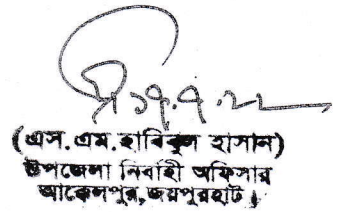 ১৭.৭.২২
(এস.এম.হাবিবুল হাসান)
উপজেলা নির্বাহী অফিসার
আক্কেলপুর, জয়পুরহাট।